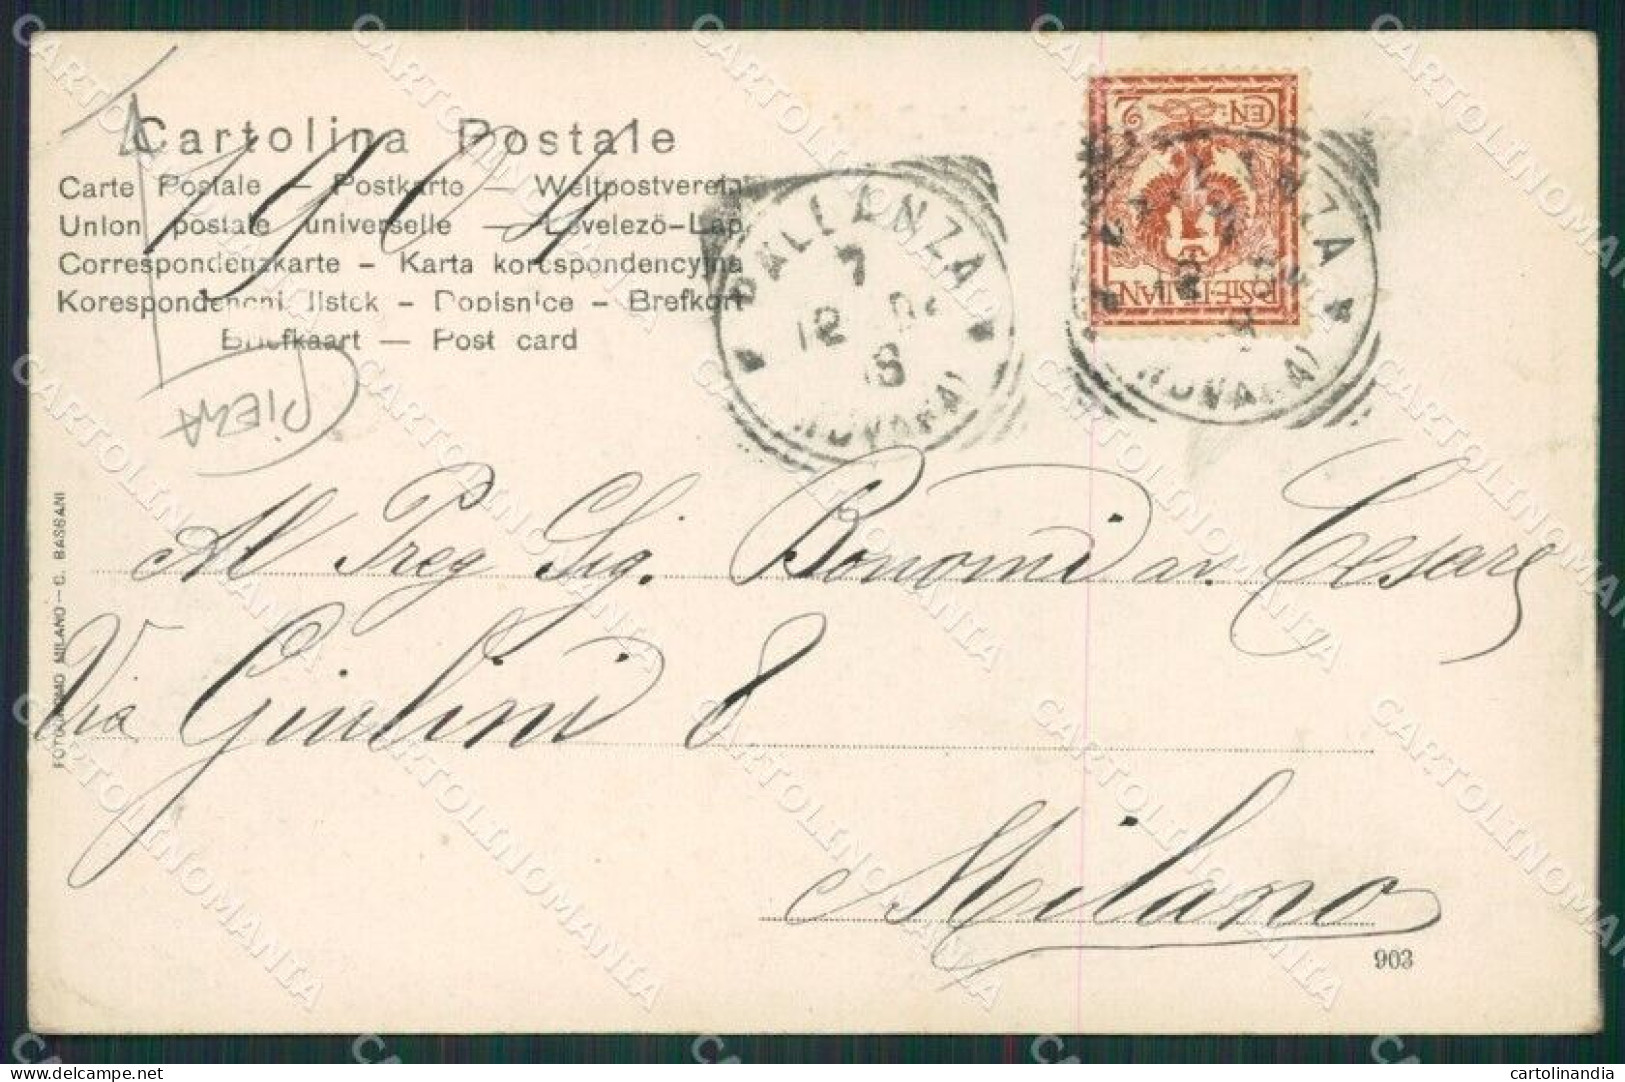 Cartolina Postale
1904
Carte Postale — Postkarte — Weltpostverein
Union postale universelle — Levelezö-Lap
Correspondenzkarte — Karta korespondencyjna
Korespondencni listek — Dopisnice — Brefkort
Briefkaart — Post card
PIEGA
PALLANZA
7
12
8
(NOVARA)
CEN. 2
POSTE ITALIANE
(NOVARA)
Al Preg Sig. Bonomi av. Cesare
Via Giulini 8
Milano
903
FOTOCROMO MILANO — C. BASSANI
CARTOLINOMANIA
www.delcampe.net
cartolinandia